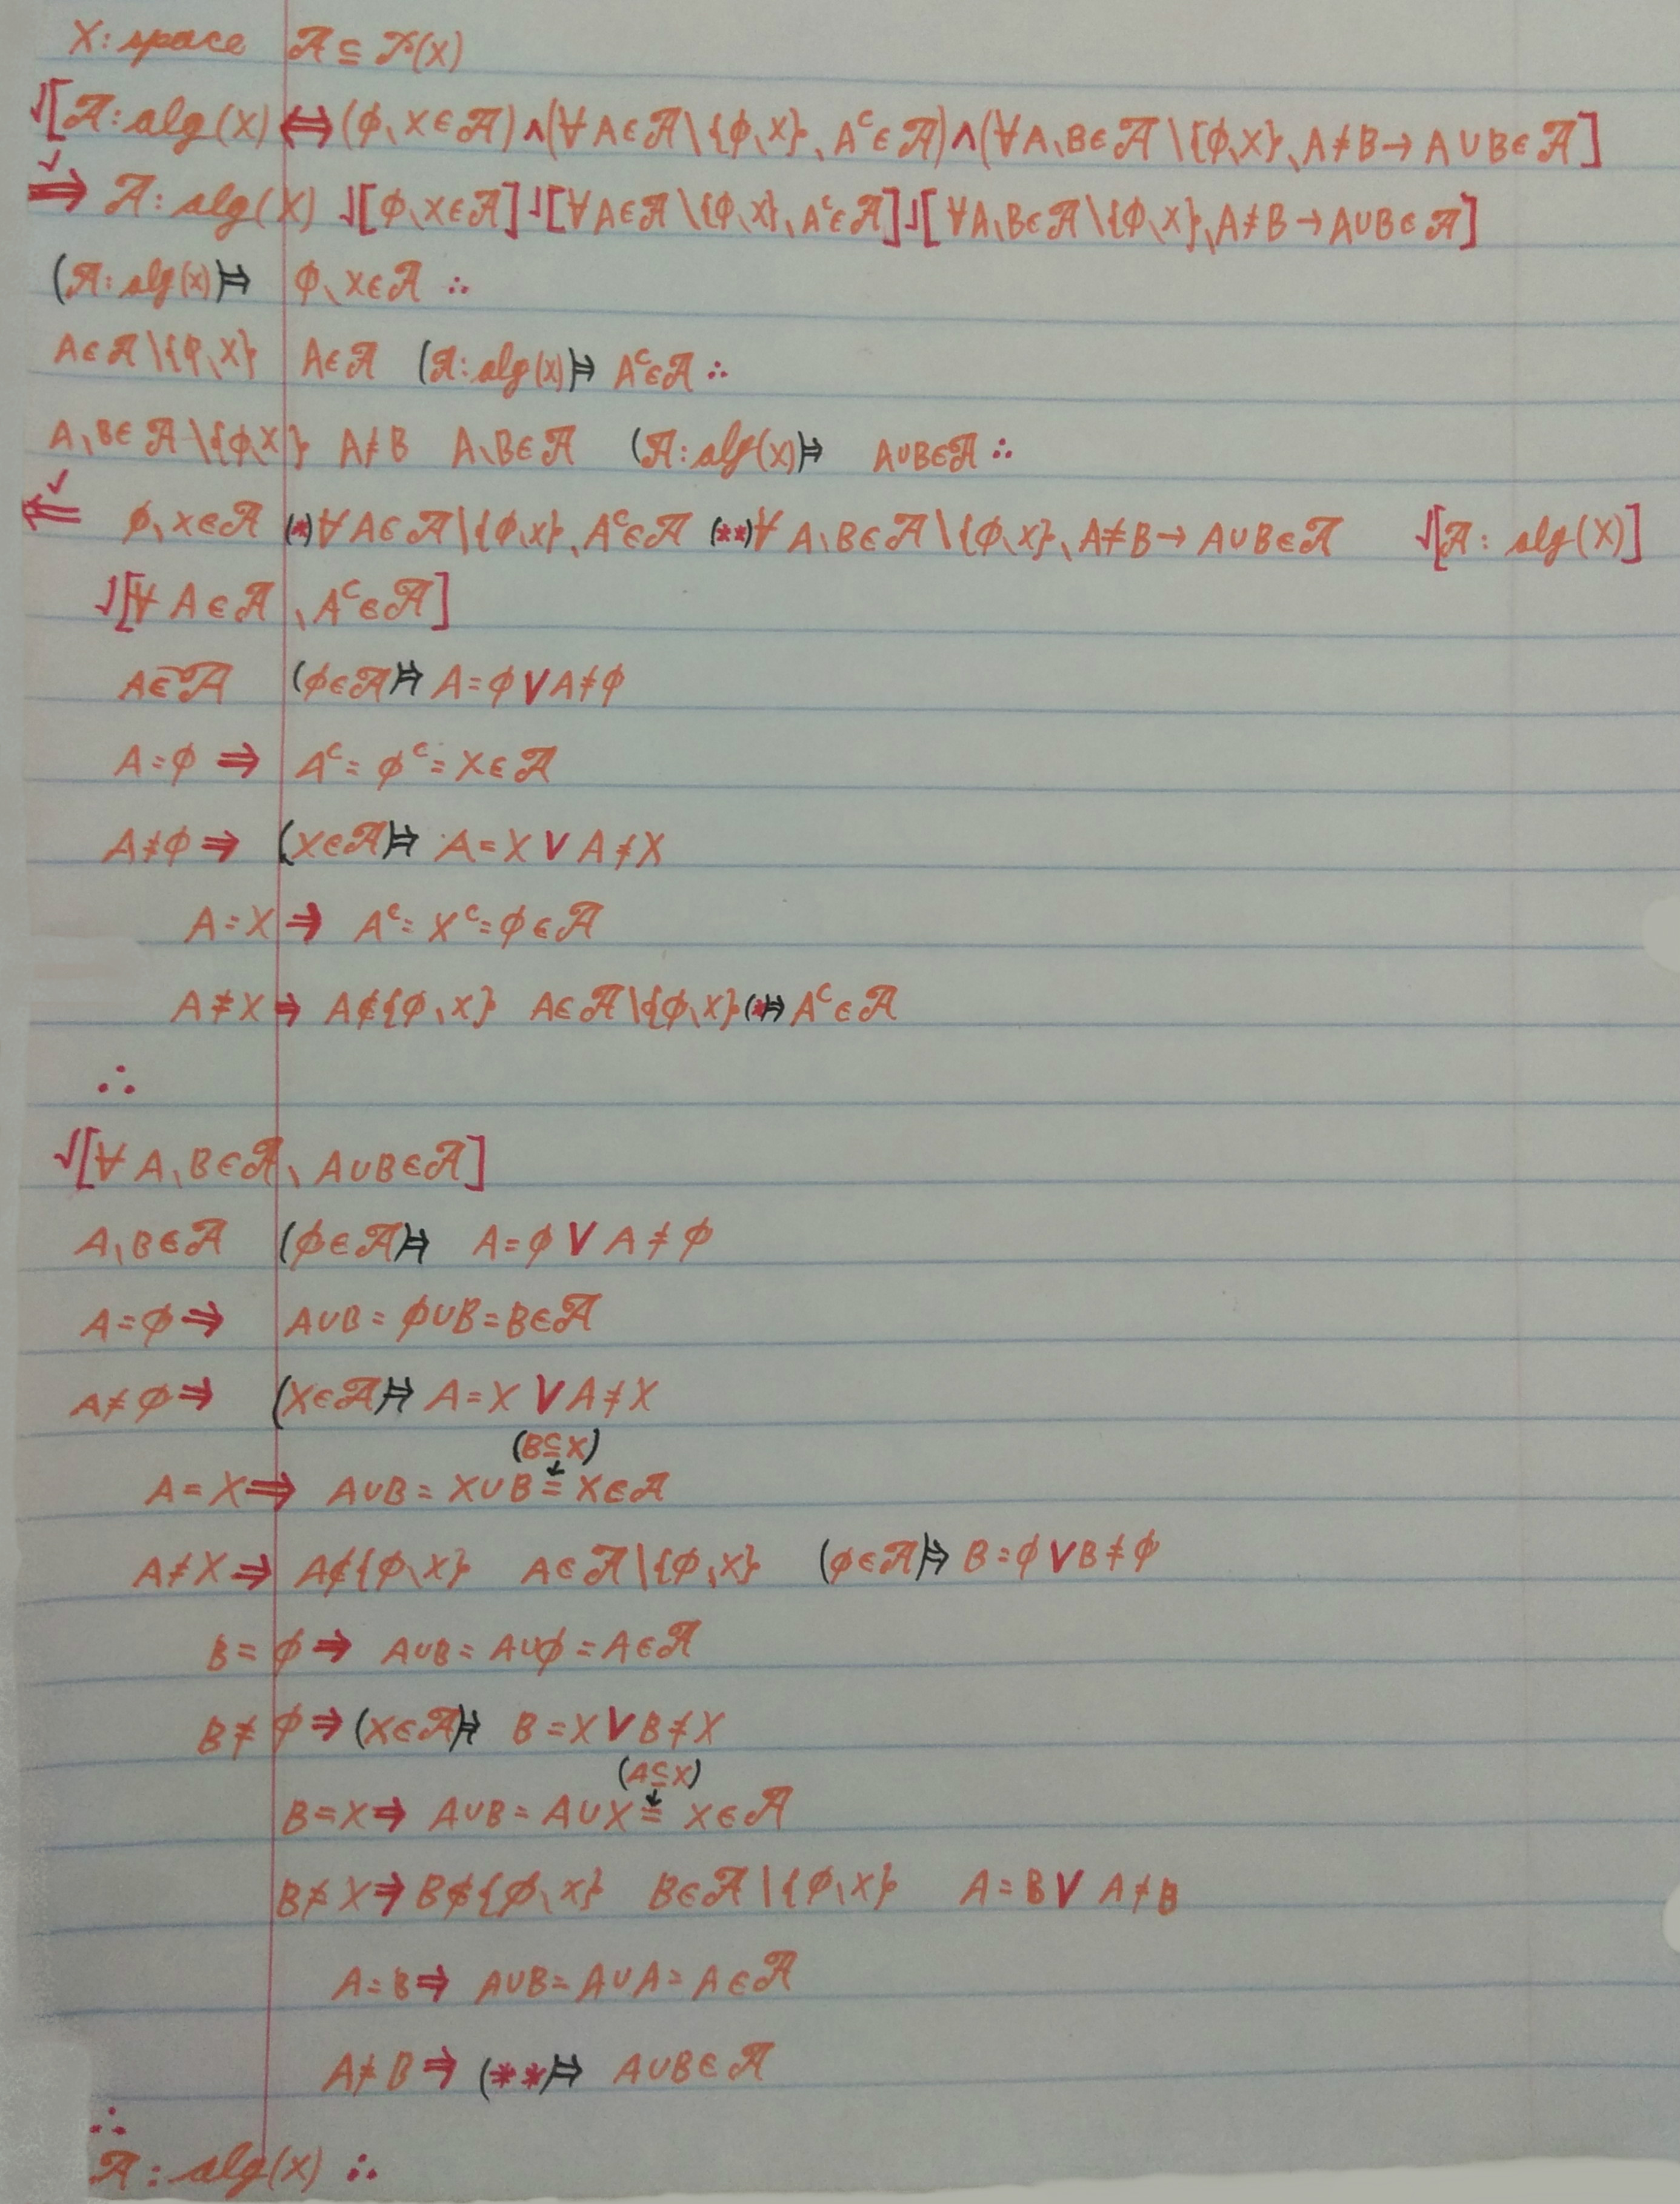 X: space 𝒜 ⊆ 𝒫(X)
√[𝒜: alg(X) ⟺ (ϕ، X∈𝒜) ∧ (∀ A∈𝒜 \ {ϕ، X}، Aᶜ∈𝒜) ∧ (∀ A، B∈𝒜 \ {ϕ، X}، A≠B → A∪B∈𝒜]
✓
⟹ 𝒜: alg(X) √[ϕ، X∈𝒜] √[∀ A∈𝒜 \ {ϕ، X}، Aᶜ∈𝒜] √[∀ A، B∈𝒜 \ {ϕ، X}، A≠B → A∪B∈𝒜]
(𝒜: alg(X)⟹ ϕ، X∈𝒜 ∴
A∈𝒜 \ {ϕ، X} A∈𝒜 (𝒜: alg(X)⟹ Aᶜ∈𝒜 ∴
A، B∈𝒜 \ {ϕ، X} A≠B A، B∈𝒜 (𝒜: alg(X)⟹ A∪B∈𝒜 ∴
✓
⟸ ϕ، X∈𝒜 (*) ∀ A∈𝒜 \ {ϕ، X}، Aᶜ∈𝒜 (**) ∀ A، B∈𝒜 \ {ϕ، X}، A≠B → A∪B∈𝒜 √[𝒜: alg(X)]
√[∀ A∈𝒜، Aᶜ∈𝒜]
A∈𝒜 (ϕ∈𝒜)⟹ A=ϕ ∨ A≠ϕ
A=ϕ ⟹ Aᶜ = ϕᶜ = X∈𝒜
A≠ϕ ⟹ (X∈𝒜)⟹ A=X ∨ A≠X
A=X ⟹ Aᶜ = Xᶜ = ϕ∈𝒜
A≠X ⟹ A∉{ϕ، X} A∈𝒜 \ {ϕ، X} (*)⟹ Aᶜ∈𝒜
∴
√[∀ A، B∈𝒜، A∪B∈𝒜]
A، B∈𝒜 (ϕ∈𝒜)⟹ A=ϕ ∨ A≠ϕ
A=ϕ ⟹ A∪B = ϕ∪B = B∈𝒜
A≠ϕ ⟹ (X∈𝒜)⟹ A=X ∨ A≠X
(B⊆X)
↓
A=X ⟹ A∪B = X∪B = X∈𝒜
A≠X ⟹ A∉{ϕ، X} A∈𝒜 \ {ϕ، X} (ϕ∈𝒜)⟹ B=ϕ ∨ B≠ϕ
B=ϕ ⟹ A∪B = A∪ϕ = A∈𝒜
B≠ϕ ⟹ (X∈𝒜)⟹ B=X ∨ B≠X
(A⊆X)
↓
B=X ⟹ A∪B = A∪X = X∈𝒜
B≠X ⟹ B∉{ϕ، X} B∈𝒜 \ {ϕ، X} A=B ∨ A≠B
A=B ⟹ A∪B = A∪A = A∈𝒜
A≠B ⟹ (**)⟹ A∪B∈𝒜
∴
𝒜: alg(X) ∴